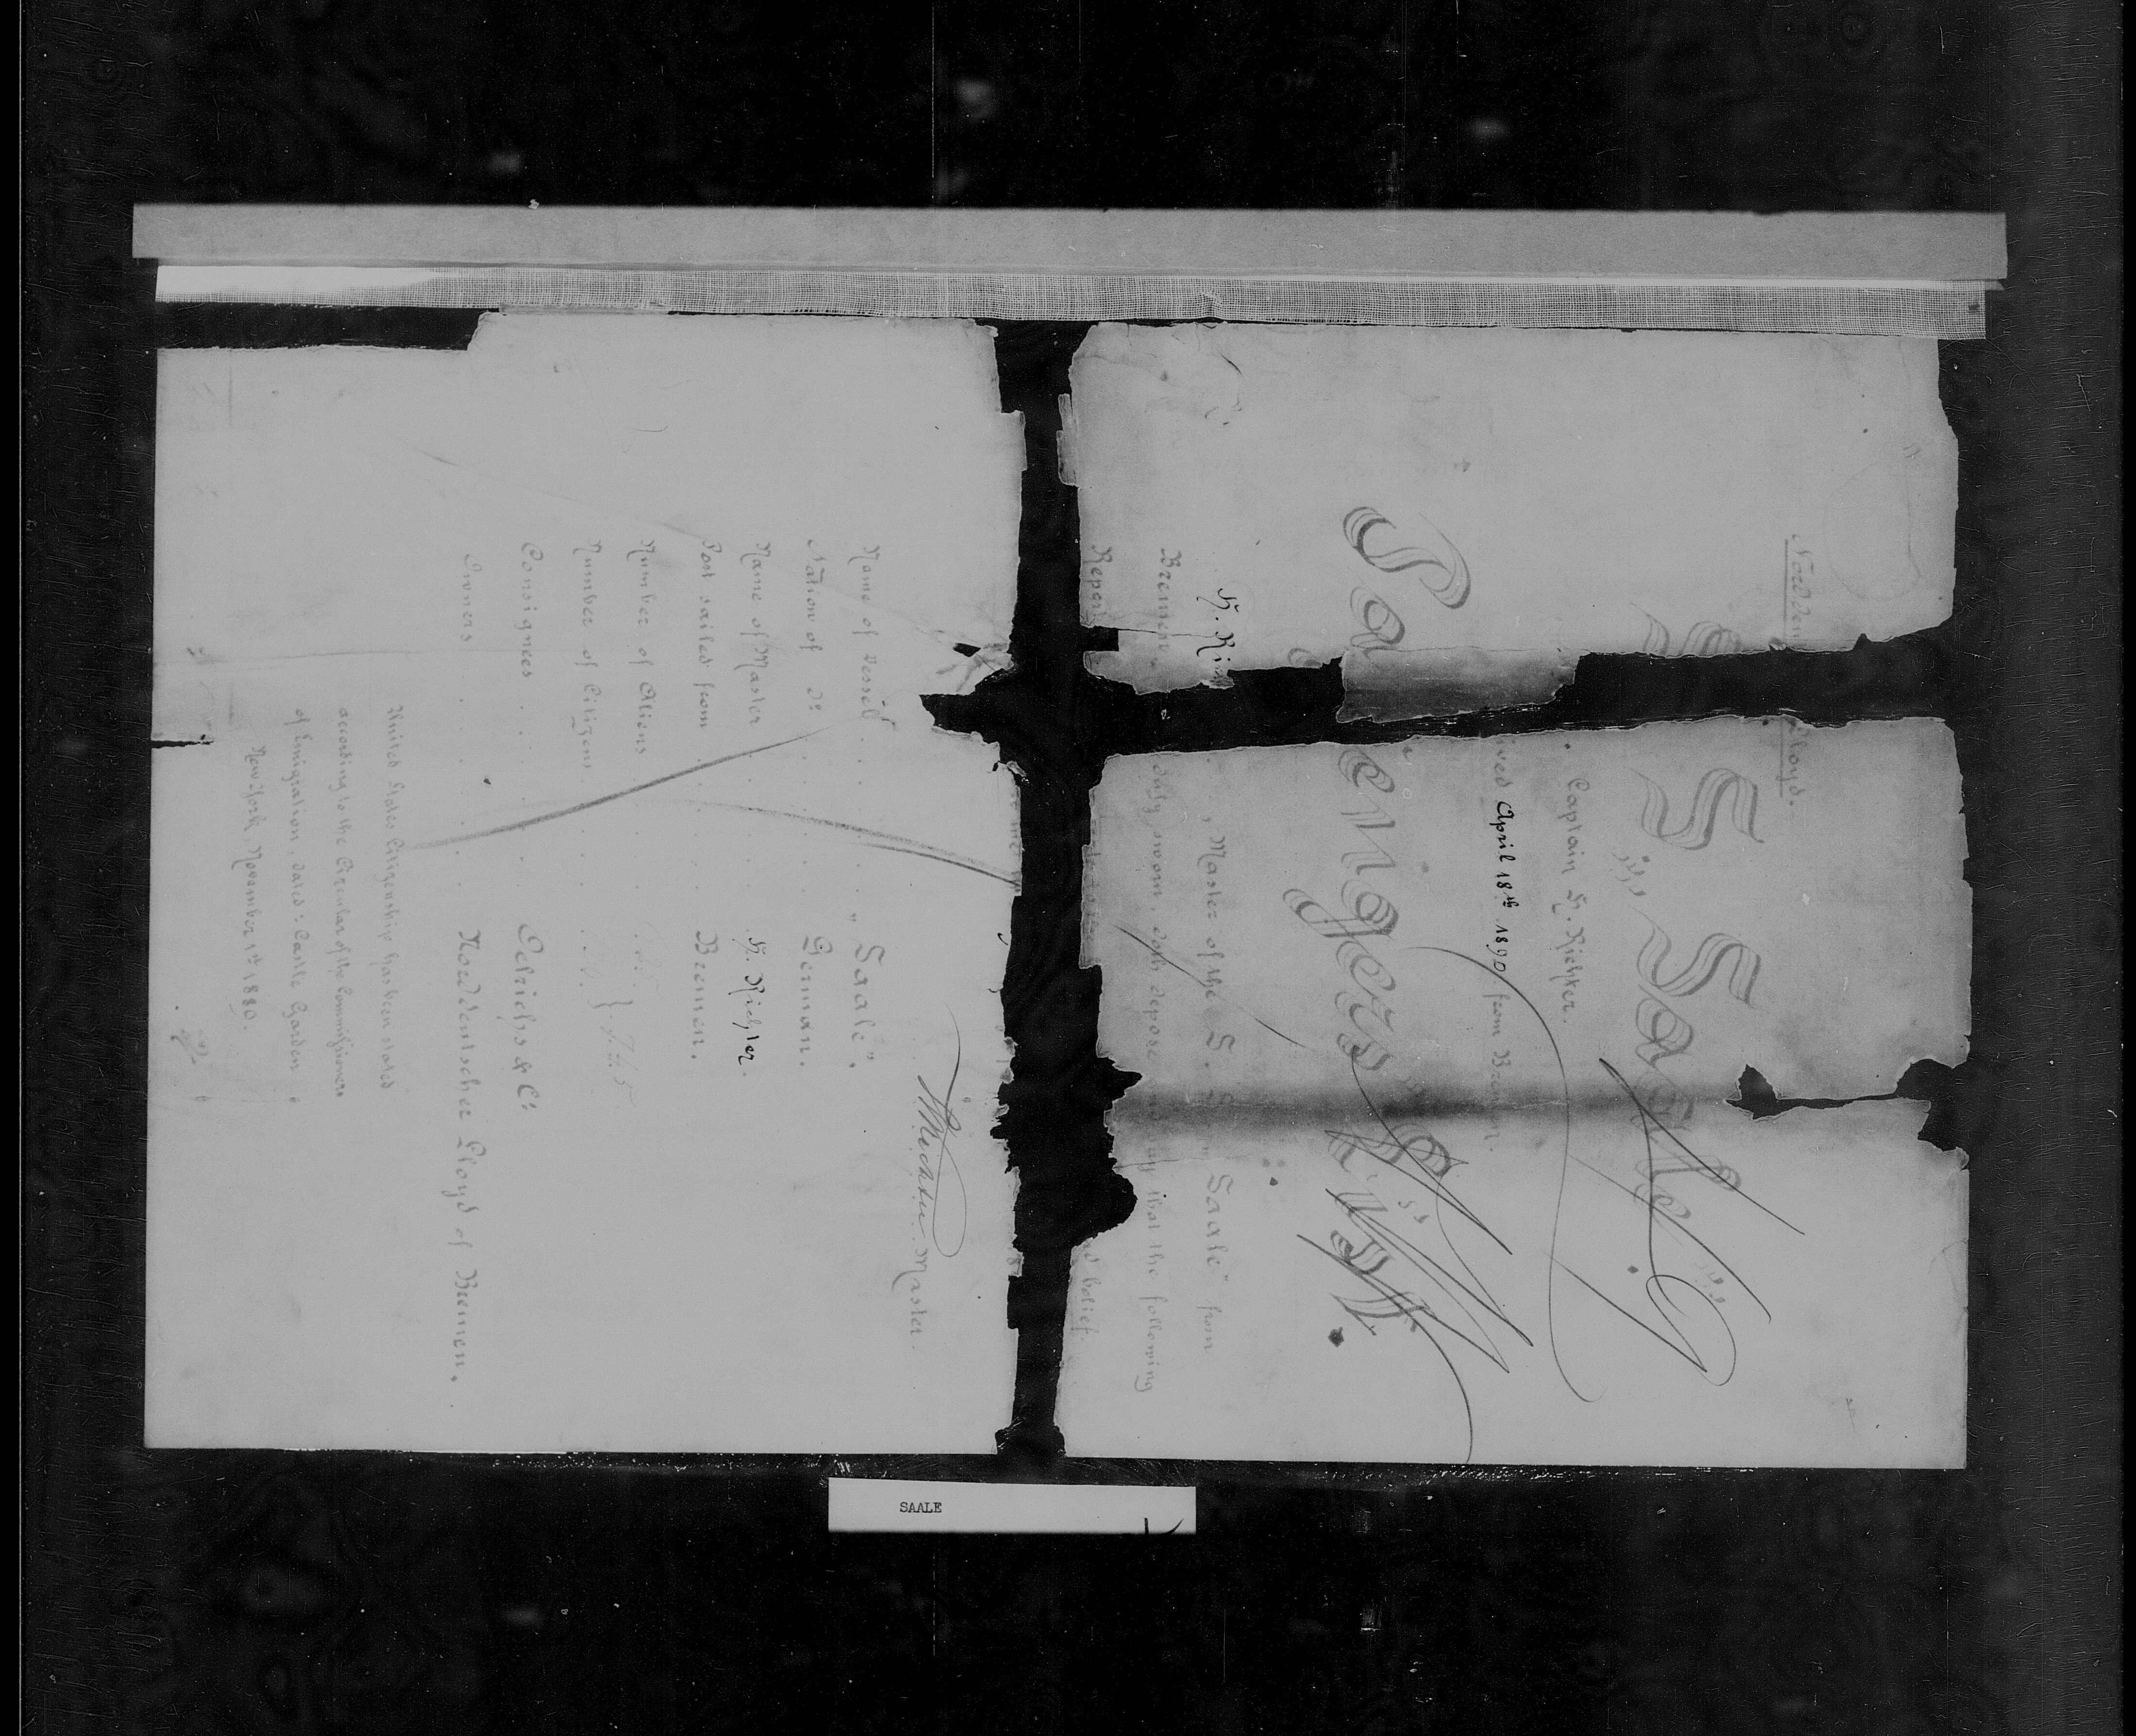 Norddeu Lloyd.
S. S. Saale
Captain H. Richter.
ived April 18th 1890 from Bremen.
Passengers List.
H. Ri , Master of the S. S. „Saale" from
Bremen, duly sworn, doth depose and say that the following
Report
d belief.
H Richter Master.
Name of Vessel . . . . „Saale".
Nation of do . . . . German.
Name of Master . . . H. Richter.
Port sailed from . . . Bremen.
Number of Aliens
Number of Citizens
Consignees . . . . Oelrichs & Co.
Owners . . . . Norddeutscher Lloyd of Bremen.
United States Citizenship has been stated
according to the Circular of the Commissioners
of Emigration, dated: Castle Garden
New-York, November 1st 1880.
SAALE